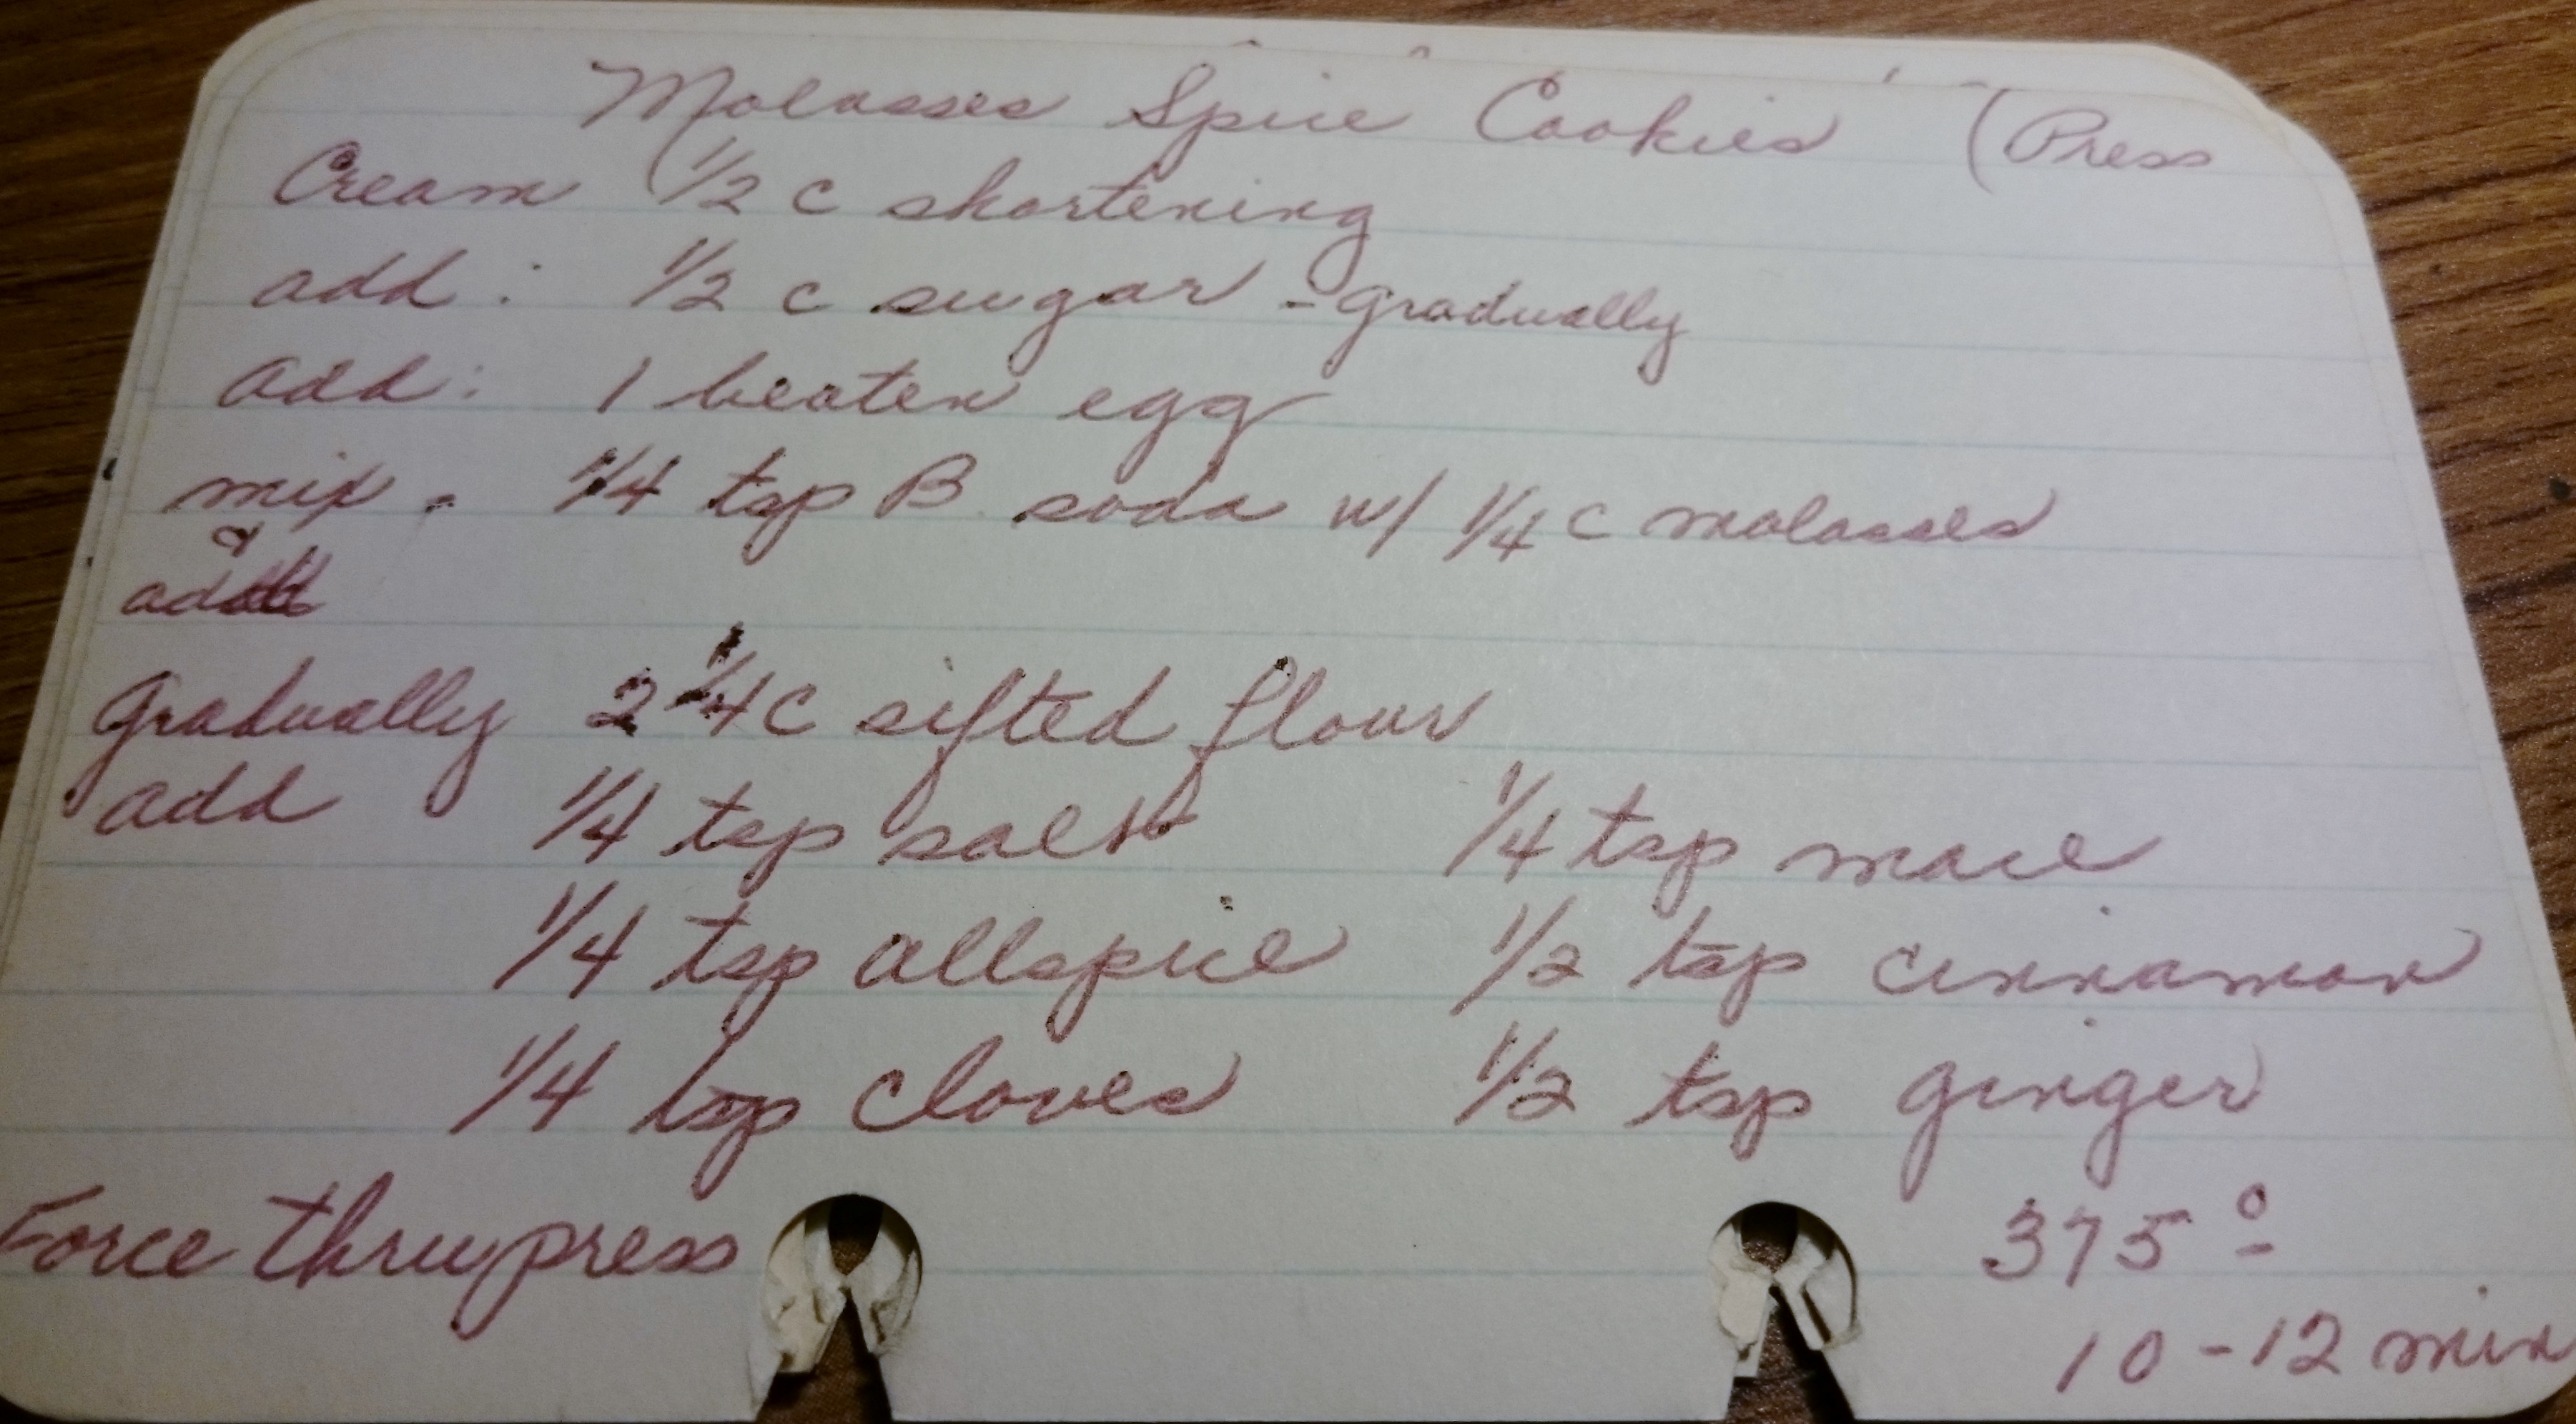 Molasses Spice Cookies (Press
Cream 1/2 c shortening
add: 1/2 c sugar - gradually
add: 1 beaten egg
mix - 1/4 tsp B. soda w/ 1/4 c molasses
&
add
Gradually 2 1/4 c sifted flour
add 1/4 tsp salt 1/4 tsp mace
1/4 tsp allspice 1/2 tsp cinnamon
1/4 tsp cloves 1/2 tsp ginger
Force thru press 375°
10-12 min